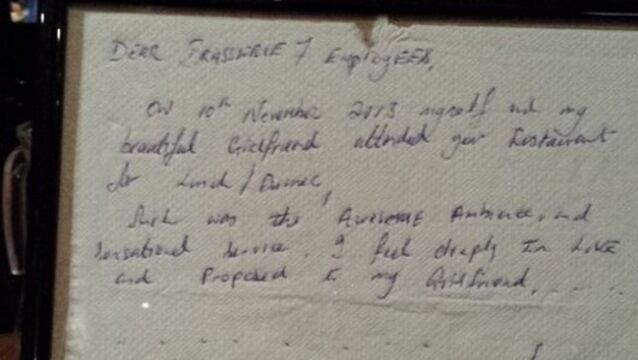 DEAR BRASSERIE 7 EmployEES,
On 10th November 2013 myself and my
beautiful Girlfriend attended your Restaurant
for Lunch / Dinner,
Such was the AWESOME Ambience, and
sensational service, I feel deeply In LOVE
and Proposed to my Girlfriend, ....